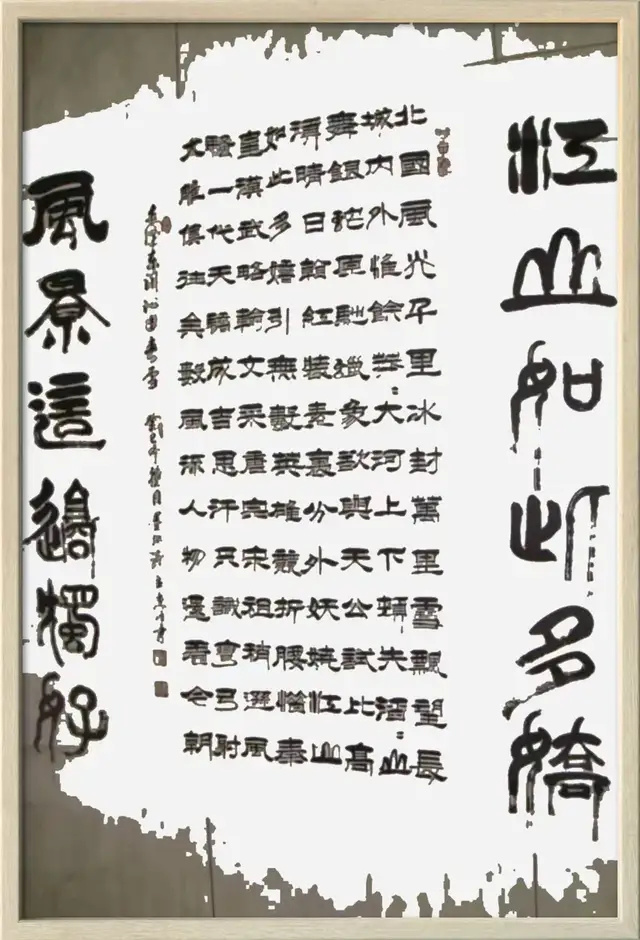 江山如此多嬌
北國風光千里冰封萬里雪飄望長
城內外惟餘莽〻大河上下頓失滔〻山
舞銀蛇原馳蠟象欲與天公試比高
須晴日看紅裝素裹分外妖嬈江山
如此多嬌引無數英雄競折腰惜秦
皇漢武略輸文采唐宗宋祖稍遜風
騷一代天驕成吉思汗只識彎弓射
大雕俱往矣數風流人物還看今朝
毛澤東詞沁園春雪
風景這邊獨好